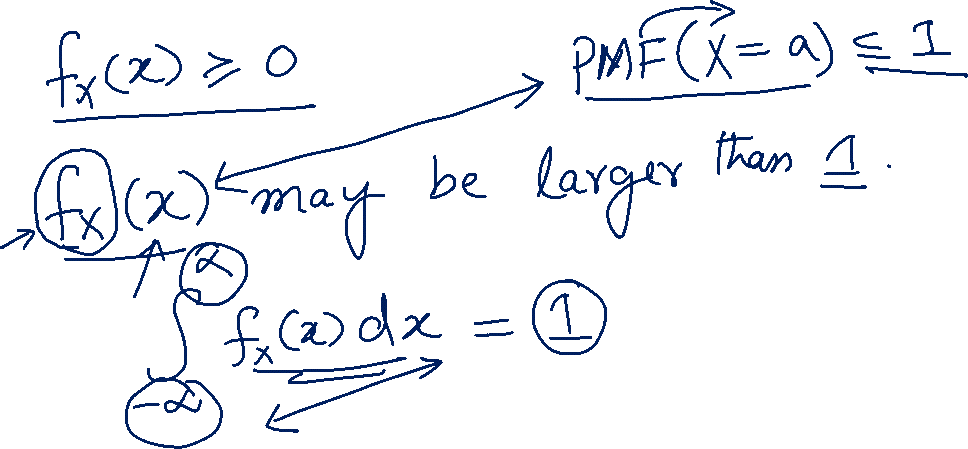 f_X(x) ≥ 0 PMF(X = a) ≤ 1
f_X(x) may be larger than 1.
∫_{-∞}^{∞} f_X(x) dx = 1